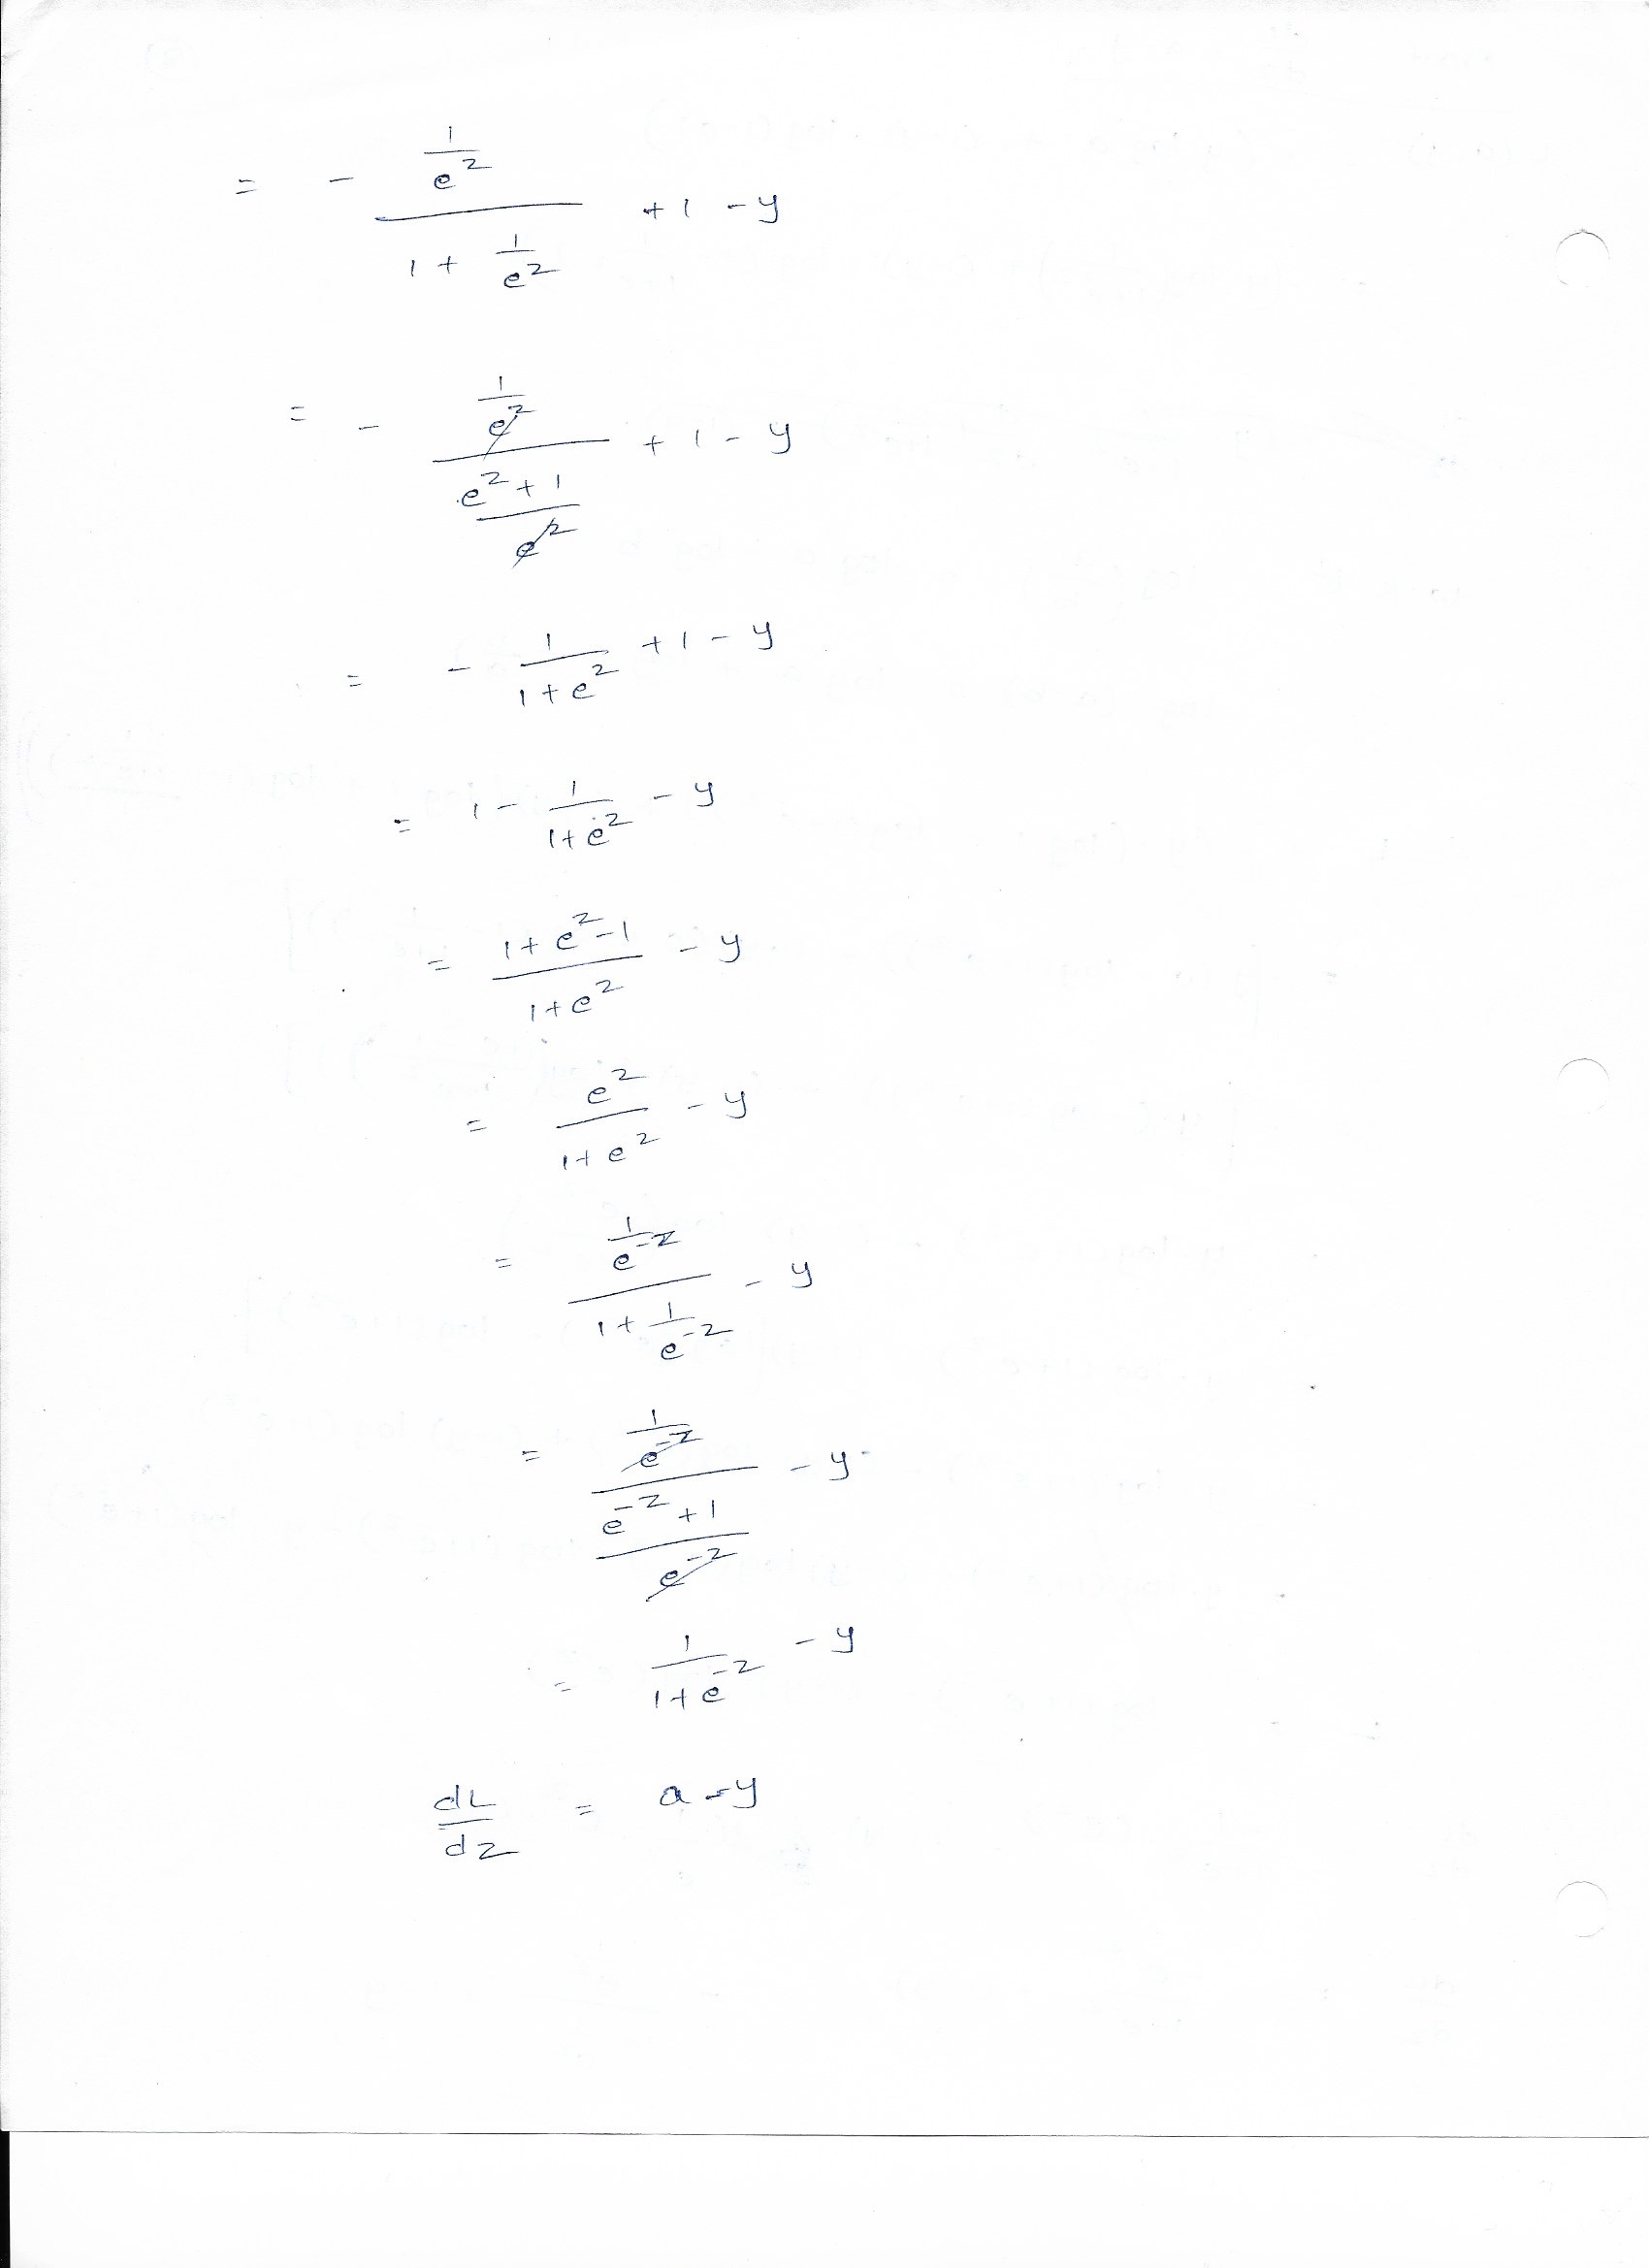 = - (1/e^z)/(1 + 1/e^z) + 1 - y
= - (1/e^z)/((e^z + 1)/e^z) + 1 - y
= - 1/(1 + e^z) + 1 - y
= 1 - 1/(1 + e^z) - y
= (1 + e^z - 1)/(1 + e^z) - y
= e^z/(1 + e^z) - y
= (1/e^-z)/(1 + 1/e^-z) - y
= (1/e^-z)/((e^-z + 1)/e^-z) - y
= 1/(1 + e^-z) - y
dL/dz = a - y